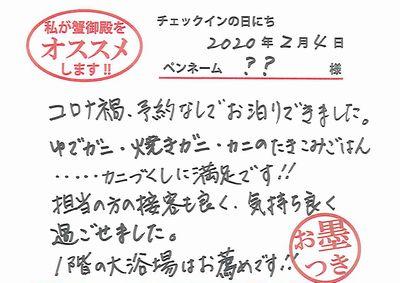 私が蟹御殿を
オススメ
します!!
チェックインの日にち
2020年2月4日
ペンネーム ?? 様
コロナ禍、予約なしでお泊りできました。
ゆでガニ・焼きガニ・カニのたきこみごはん
・・・・・カニづくしに満足です!!
担当の方の接客も良く、気持ち良く
過ごせました。
1階の大浴場はお薦めです!!
お墨
つき